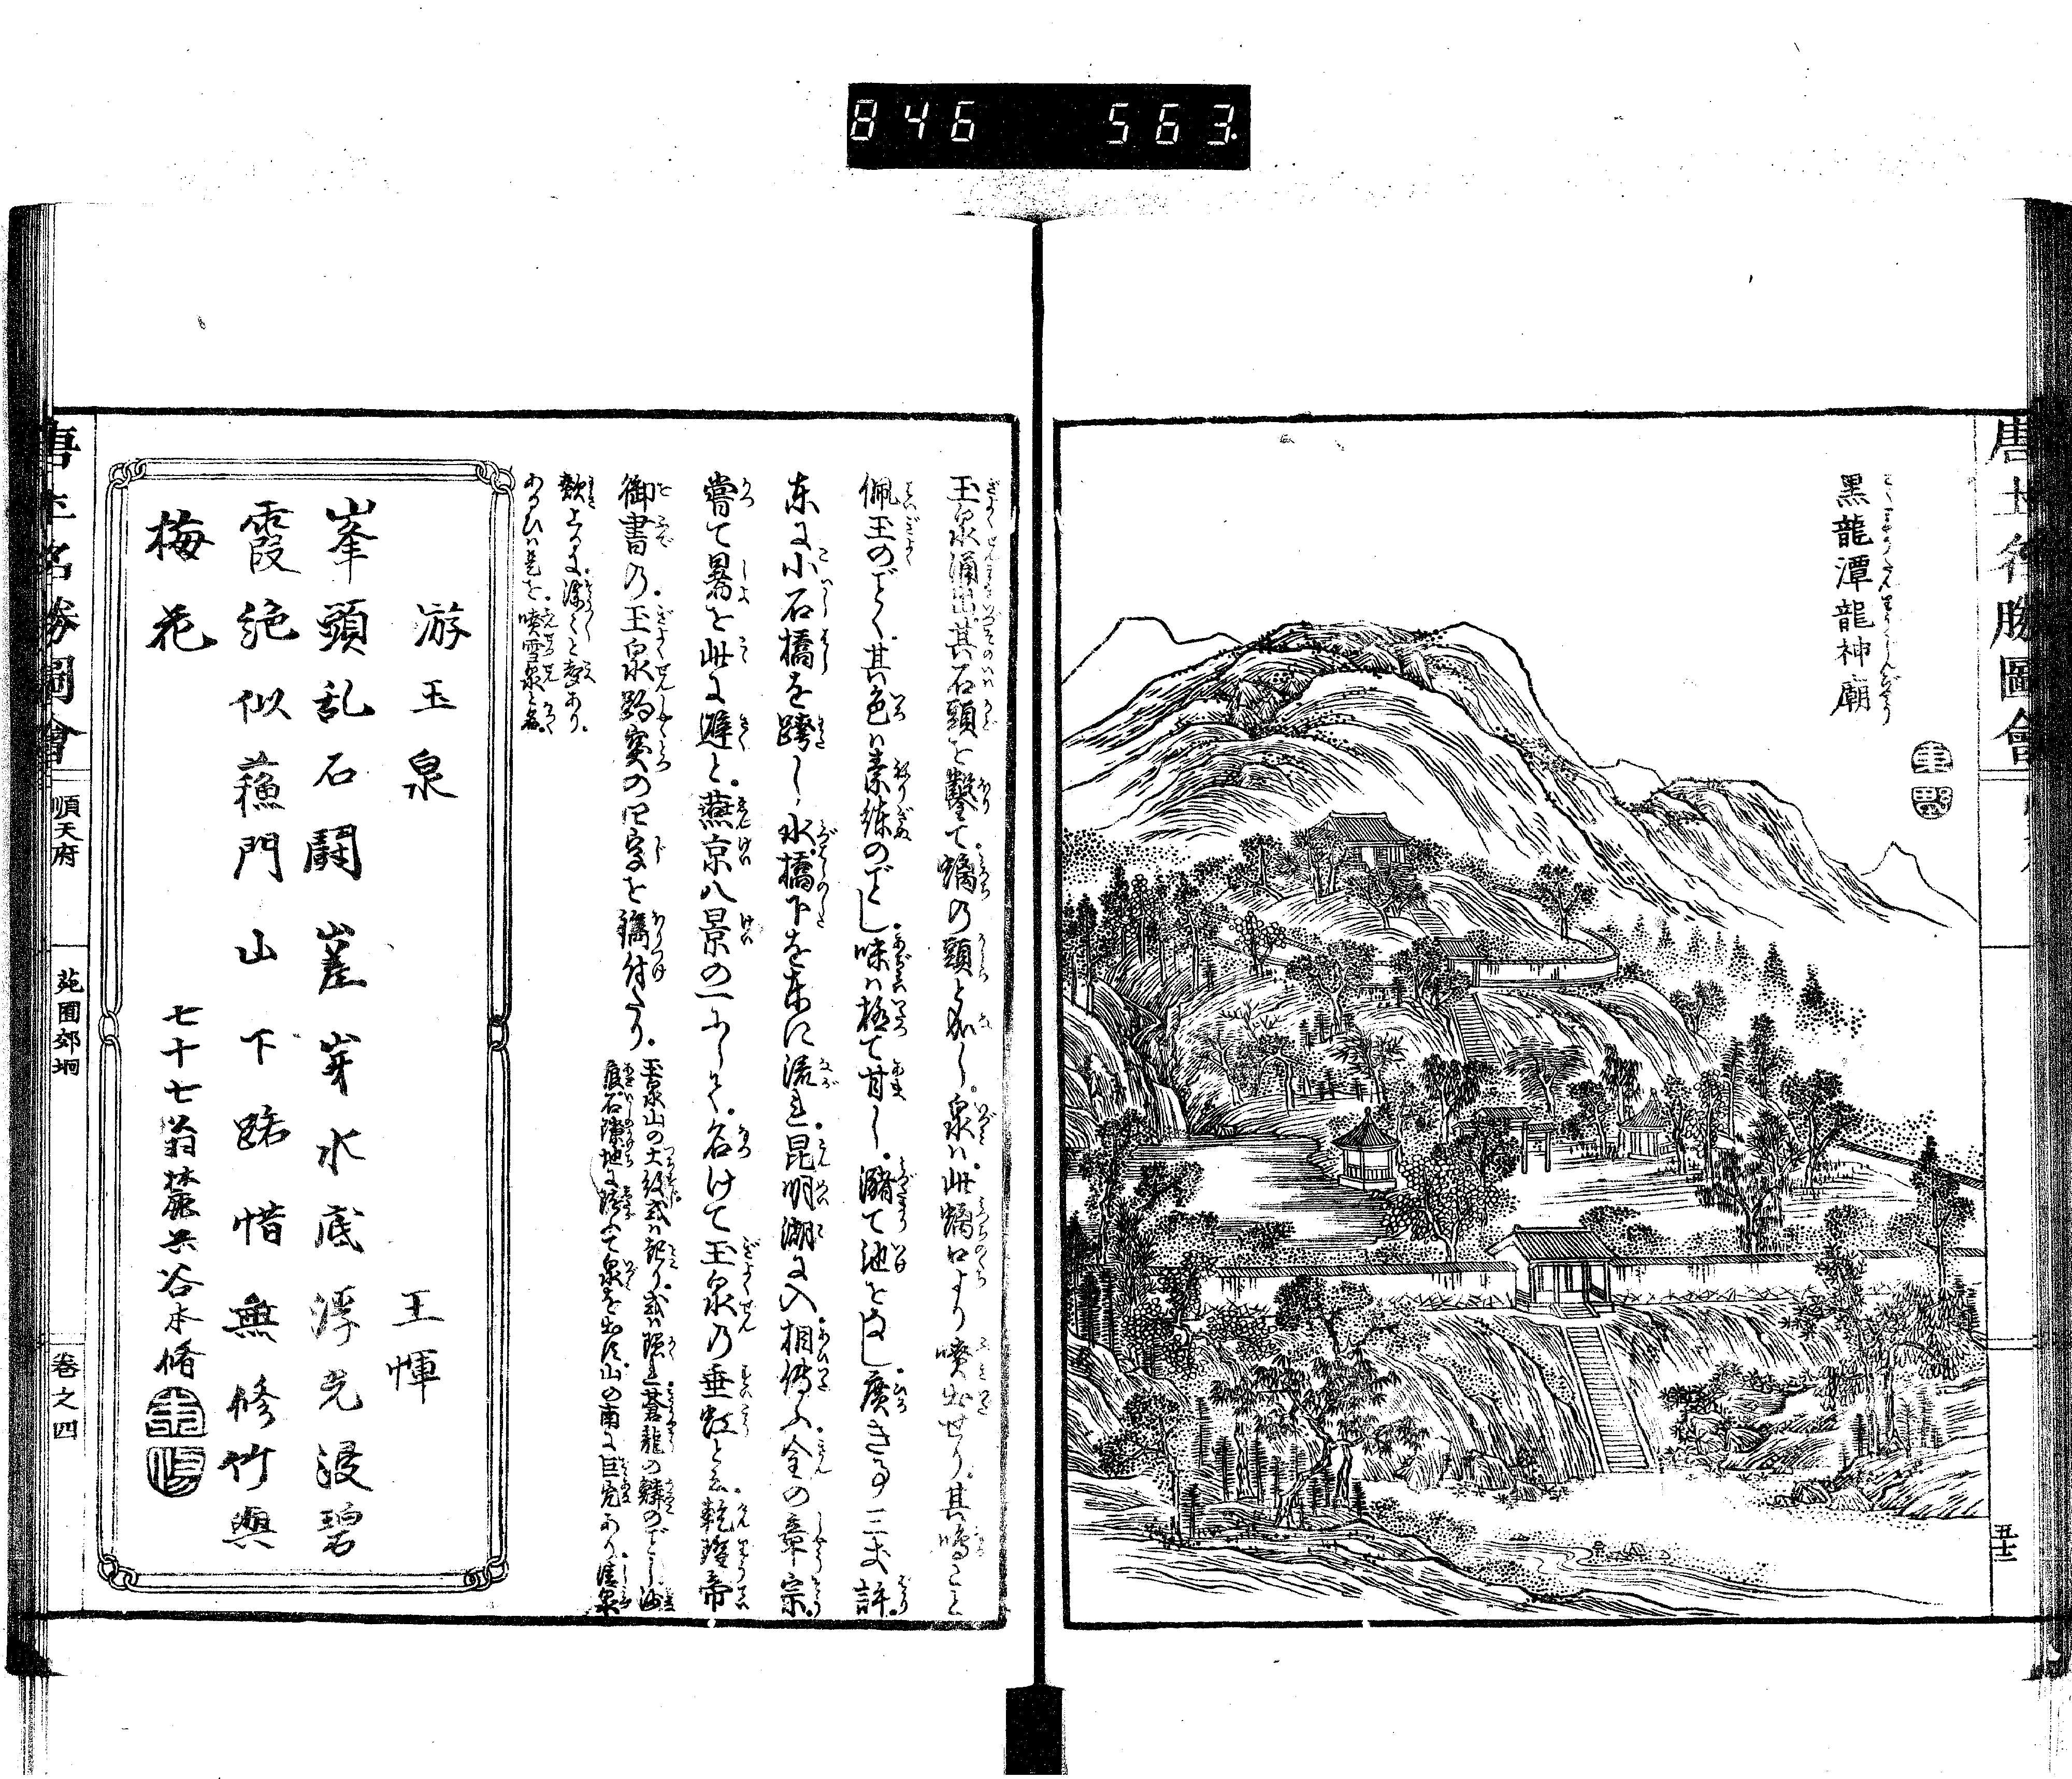 846 563
黒龍潭龍神廟
五十三
玉泉涌出其石頭を鑿て螭の頭と成し泉は此螭口より噴出せり其鳴こと
佩玉のごとく其色は素練のごとし味は極て甘し瀦て池をなし廣き事三丈許
東に小石橋を跨し水橋下を東に流れ昆明湖に入相傳ふ金の章宗
嘗て暑を此に避と燕京八景の一にして名けて玉泉の垂虹と云乾隆帝
御書の玉泉趵突の四字を鐫付たり
玉泉山の土紋或は起り或は隠れ蒼龍の鱗のごとし沙
痕石隙地に随て泉を出す山の南に巨穴あり
あるひは是を噴雪泉と名く
游玉泉
王惲
峯頭乱石鬪嵯岈水底浮光浸碧
霞絶似蘓門山下路惜無修竹與
梅花
七十七翁
谷本脩
唐土名勝圖會
順天府
苑囿郊坰
卷之四